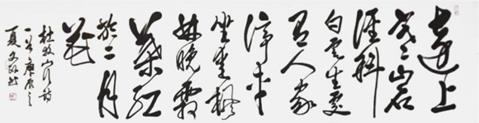 遠上
寒山石
徑斜
白云生處
有人家
停車
坐愛楓
林晚霜
葉紅
於二月
花
杜牧山行詩
一首庚辰之
夏